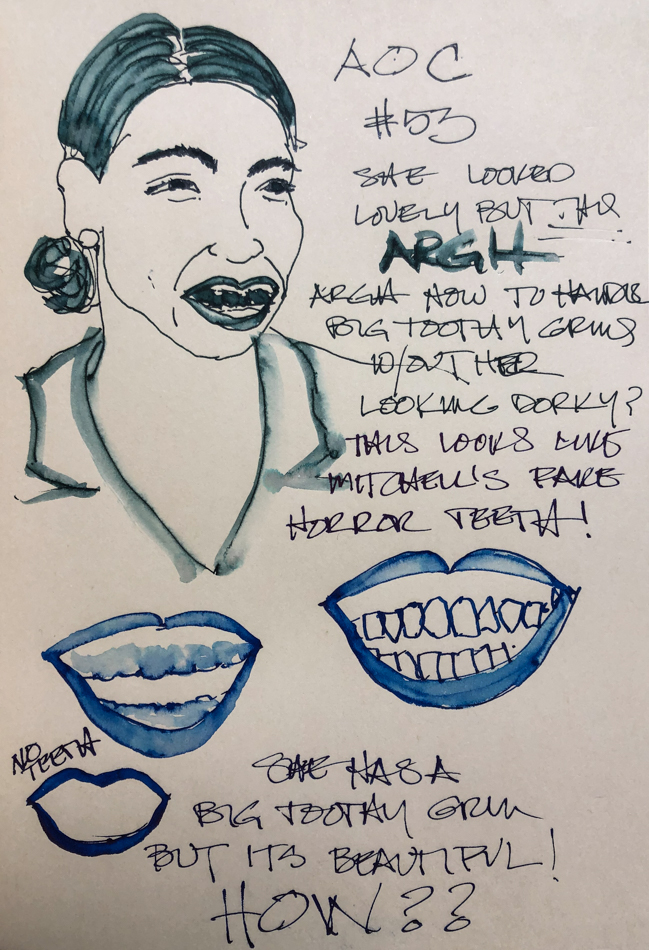 AOC
#53
SHE LOOKED
LOVELY BUT THIS
ARGH
ARGH HOW TO HANDLE
BIG TOOTHY GRINS
W/OUT HER
LOOKING DORKY?
THIS LOOKS LIKE
MITCHELL'S FAKE
HORROR TEETH!
NO
TEETH
SHE HAS A
BIG TOOTHY GRIN
BUT ITS BEAUTIFUL!
HOW??